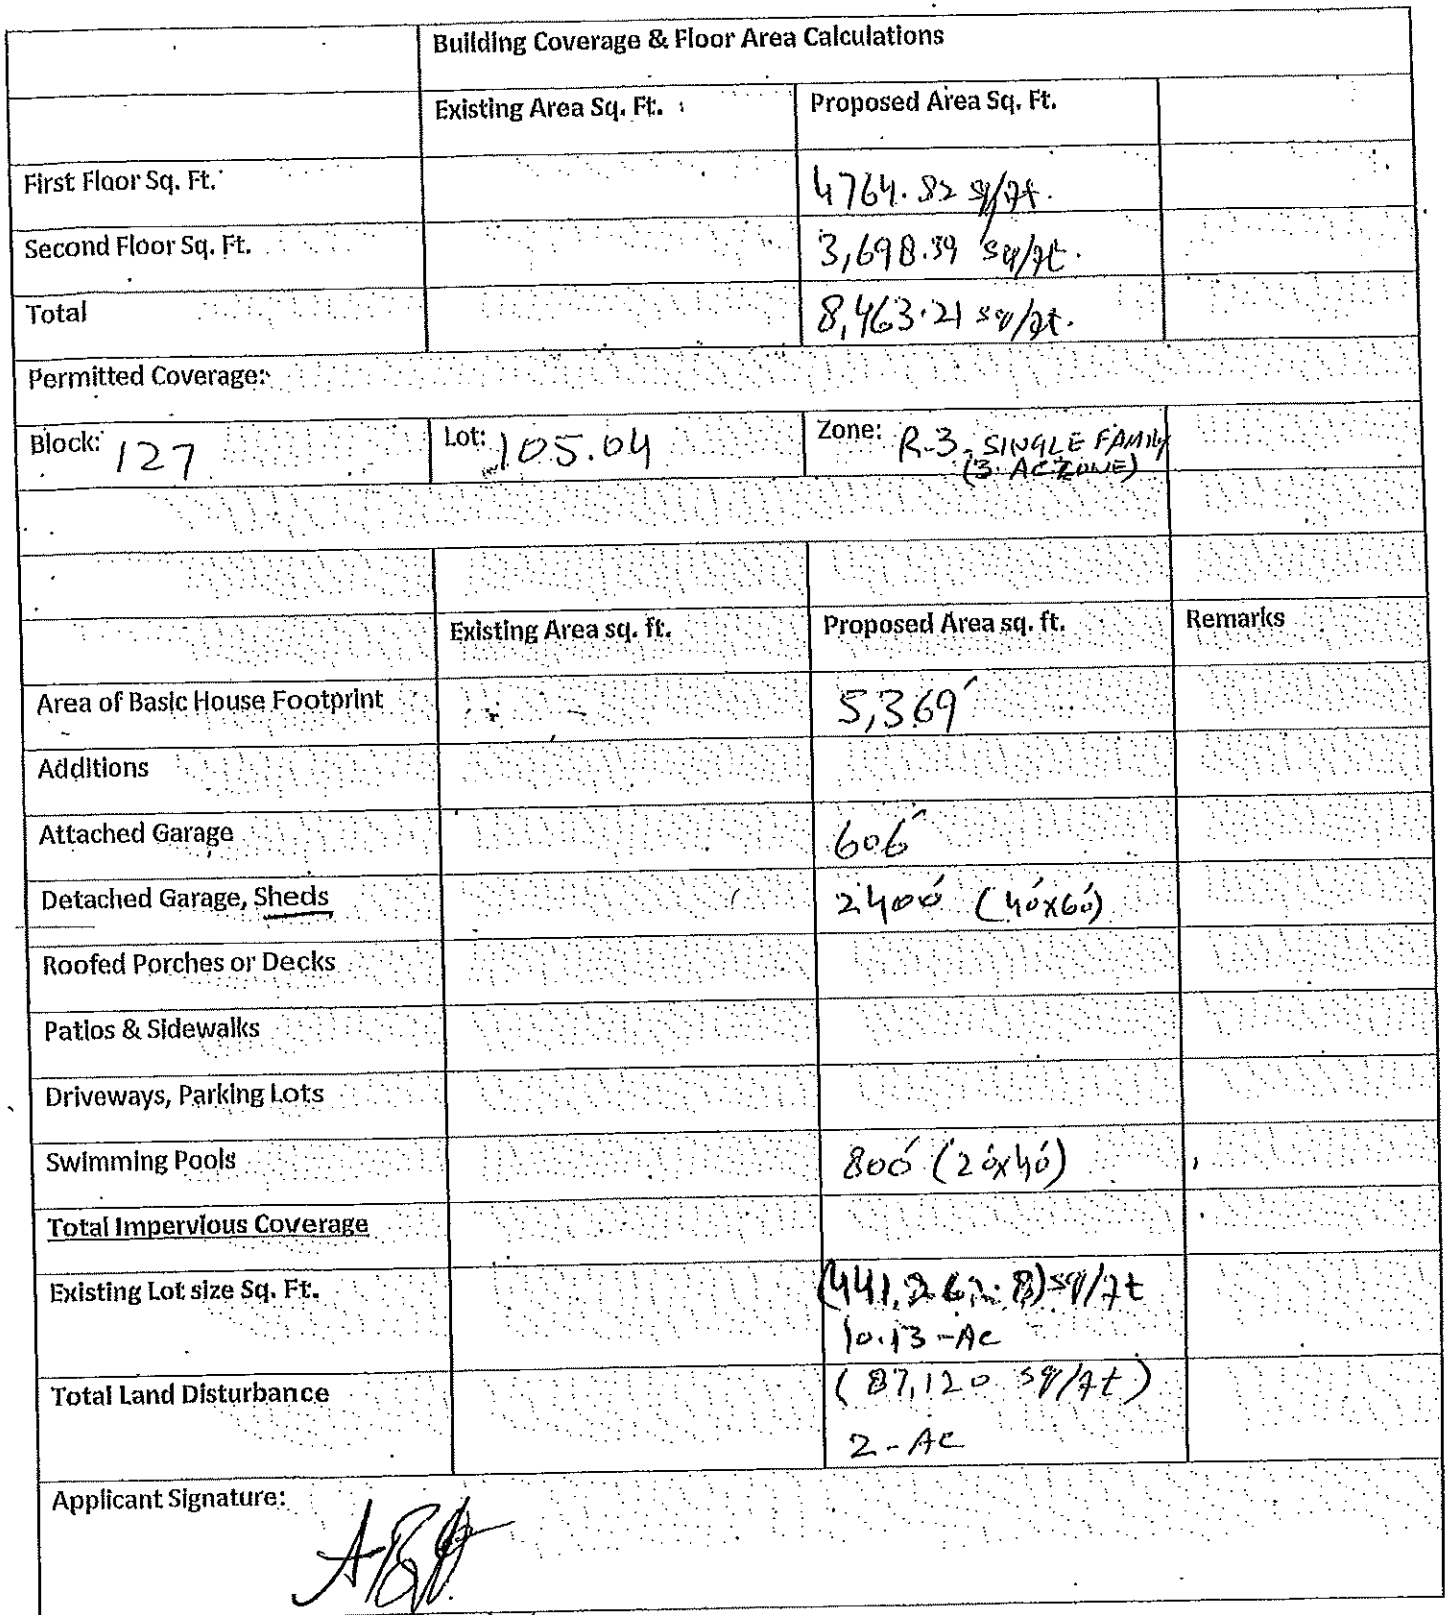 Building Coverage & Floor Area Calculations
Existing Area Sq. Ft. Proposed Area Sq. Ft.
First Floor Sq. Ft. 4764.82 sq/ft.
Second Floor Sq. Ft. 3,698.39 sq/ft.
Total 8,463.21 sq/ft.
Permitted Coverage:
Block: 127 Lot: 105.04 Zone: R-3-SINGLE FAMILY
(3-AC ZONE)
Existing Area sq. ft. Proposed Area sq. ft. Remarks
Area of Basic House Footprint 5,369'
Additions
Attached Garage 606'
Detached Garage, Sheds 2400' (40'x60')
Roofed Porches or Decks
Patios & Sidewalks
Driveways, Parking Lots
Swimming Pools 800' (20'x40')
Total Impervious Coverage
Existing Lot size Sq. Ft. (441,262.8) sq/ft
10.13-AC
Total Land Disturbance (87,120 sq/ft)
2-AC
Applicant Signature: